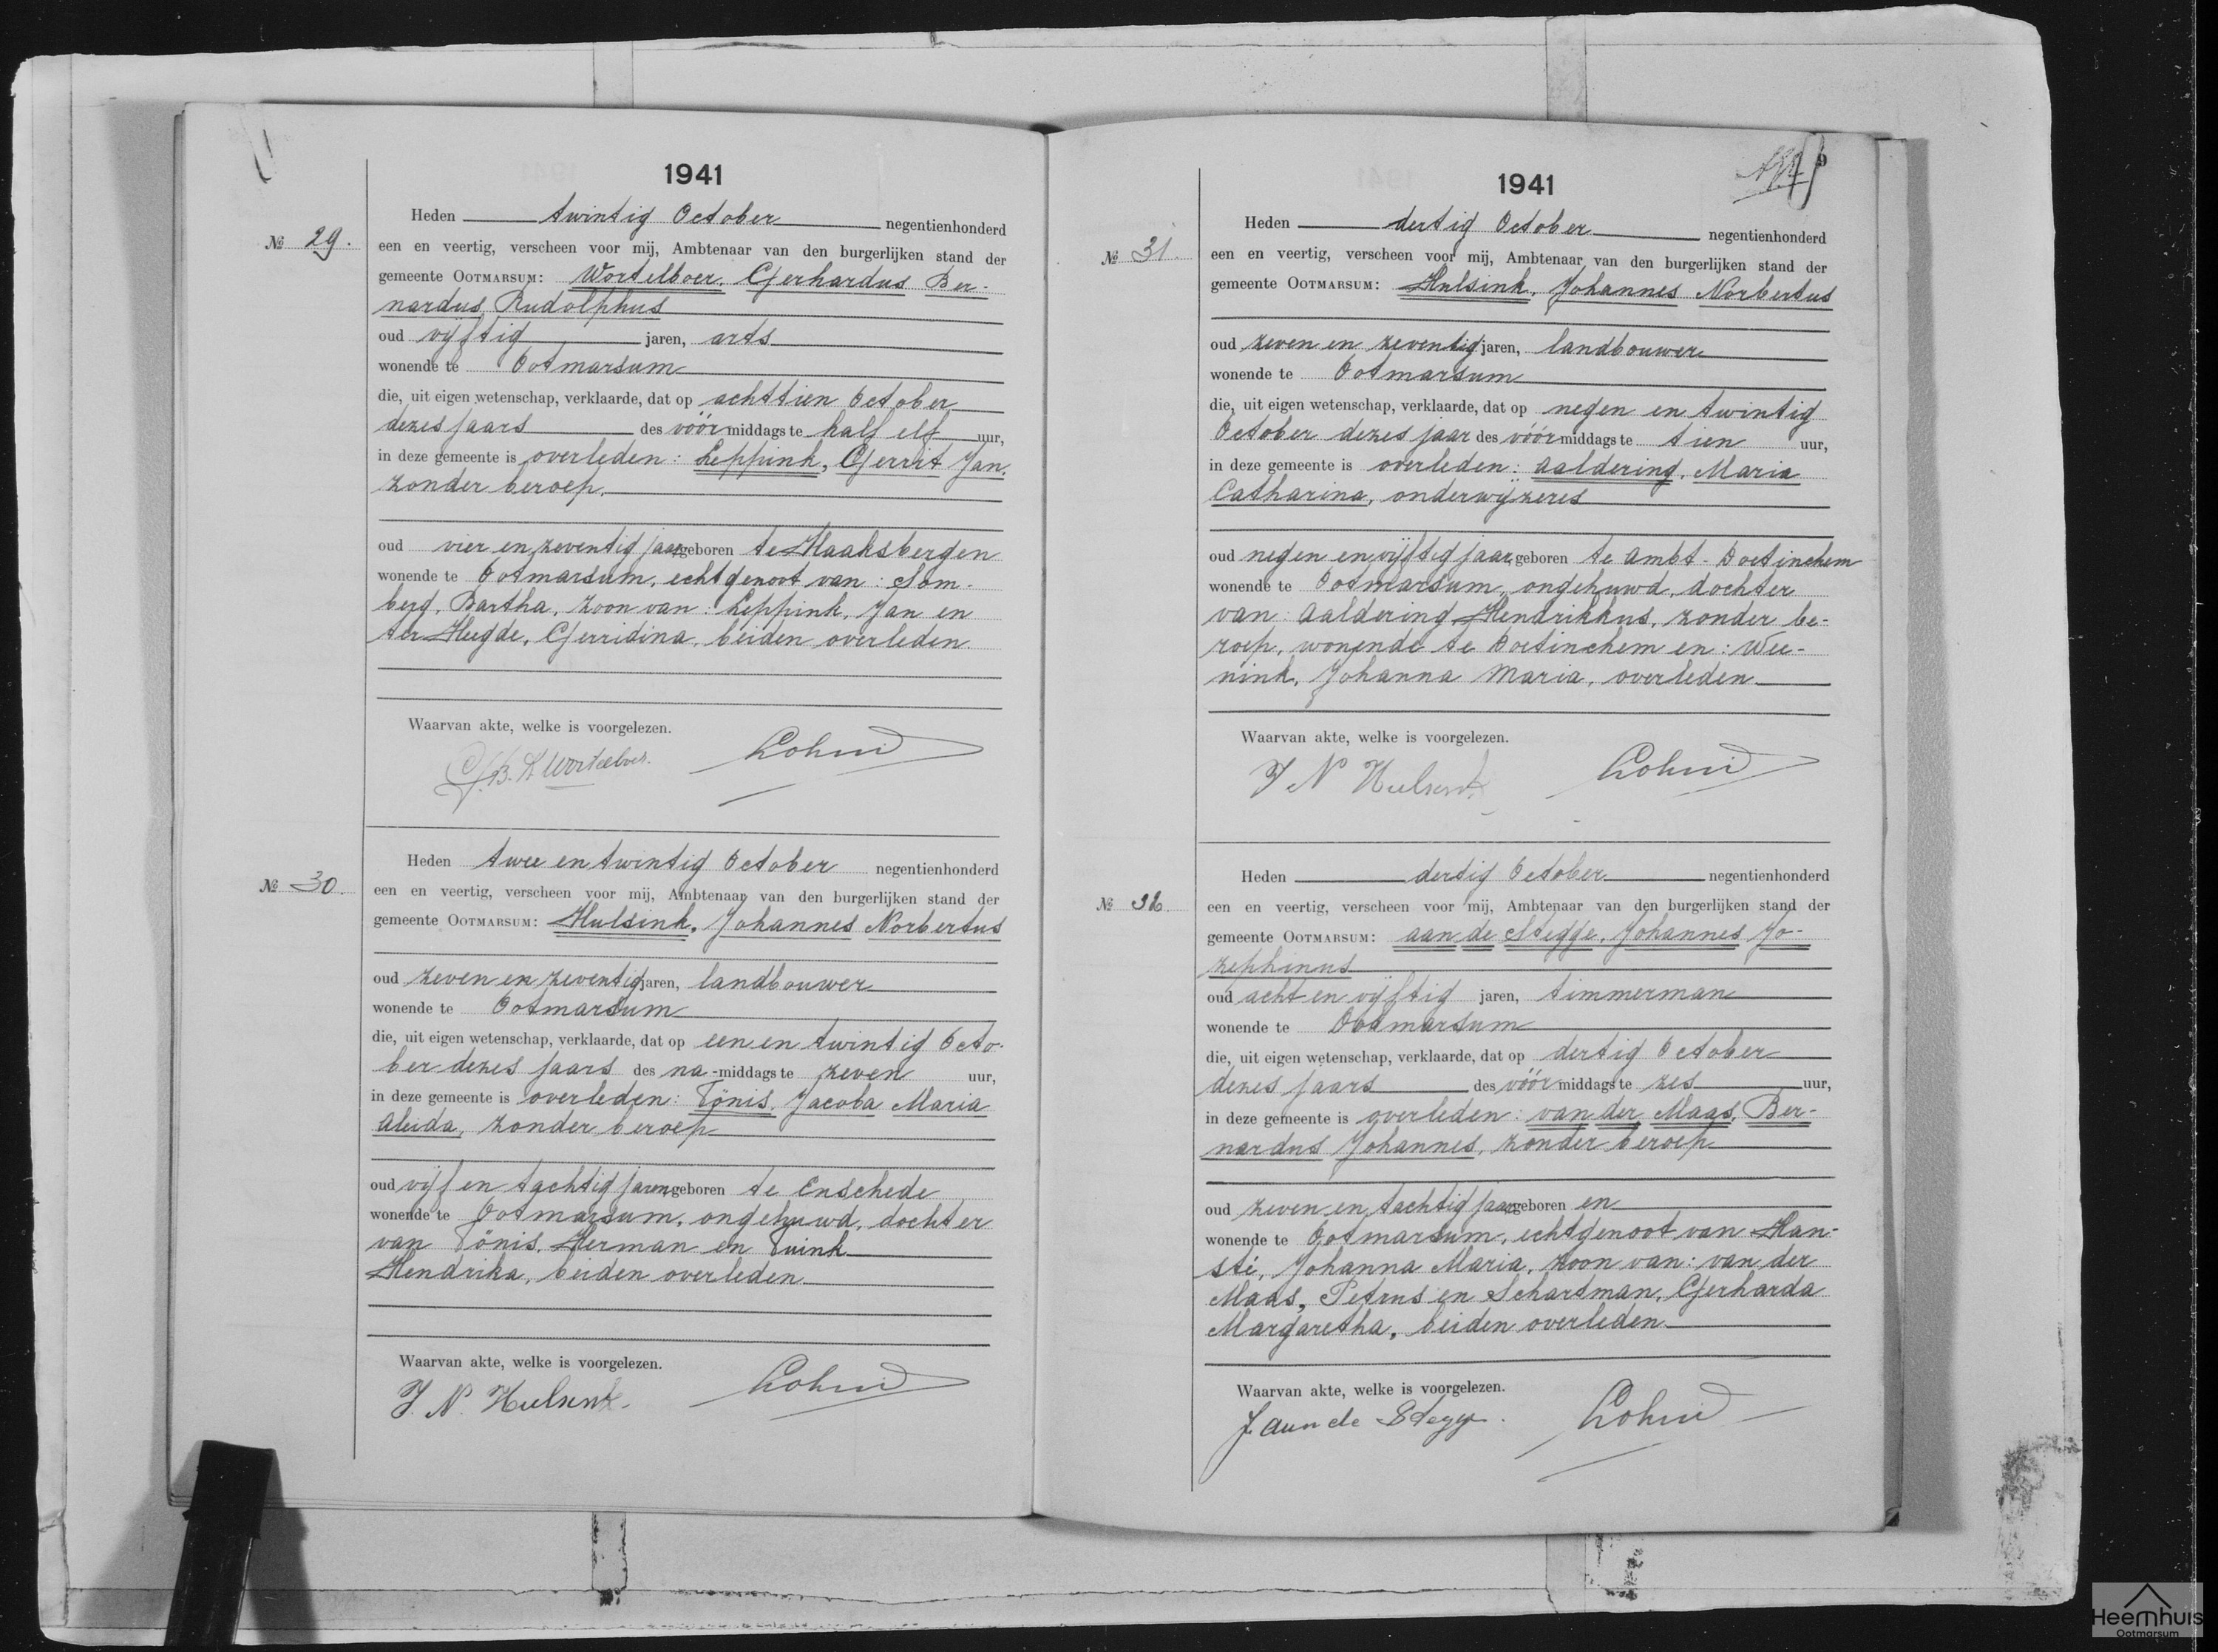 1941
Heden twintig October negentienhonderd
№ 29.
een en veertig, verscheen voor mij, Ambtenaar van den burgerlijken stand der
gemeente OOTMARSUM: Wortelboer, Gerhardus Ber-
nardus Rudolphus
oud vijftig jaren, arts
wonende te Ootmarsum
die, uit eigen wetenschap, verklaarde, dat op achttien October
dezes jaars des vóór middags te half elf uur,
in deze gemeente is overleden: Leppink, Gerrit Jan,
zonder beroep,
oud vier en zeventig jaar geboren te Haaksbergen
wonende te Ootmarsum, echtgenoot van: Som-
berg, Bartha, zoon van: Leppink, Jan en
ter Hegde, Gerridina, beiden overleden.
Waarvan akte, welke is voorgelezen.
G.B.R. Wortelboer.
Heden twee en twintig October negentienhonderd
№ 30.
een en veertig, verscheen voor mij, Ambtenaar van den burgerlijken stand der
gemeente OOTMARSUM: Hulsink, Johannes Norbertus
oud zeven en zeventig jaren, landbouwer
wonende te Ootmarsum
die, uit eigen wetenschap, verklaarde, dat op een en twintig Octo-
ber dezes jaars des na-middags te zeven uur,
in deze gemeente is overleden: Tönis, Jacoba Maria
Aleida, zonder beroep
oud vijf en tachtig jaren geboren te Enschede
wonende te Ootmarsum, ongehuwd, dochter
van Tönis, Herman en Tuink
Hendrika, beiden overleden
Waarvan akte, welke is voorgelezen.
J. N. Hulsink.
1941
Heden dertig October negentienhonderd
№ 31.
een en veertig, verscheen voor mij, Ambtenaar van den burgerlijken stand der
gemeente OOTMARSUM: Hulsink, Johannes Norbertus
oud zeven en zeventig jaren, landbouwer
wonende te Ootmarsum
die, uit eigen wetenschap, verklaarde, dat op negen en twintig
October dezes jaar des vóór middags te tien uur,
in deze gemeente is overleden: Aaldering, Maria
Catharina, onderwijzeres
oud negen en vijftig jaar, geboren te Ambt-Doetinchem
wonende te Ootmarsum, ongehuwd, dochter
van: Aaldering Hendrikkus, zonder be-
roep, wonende te Doetinchem en: Wee-
nink, Johanna Maria, overleden
Waarvan akte, welke is voorgelezen.
J N Hulsink
Heden dertig October negentienhonderd
№ 32.
een en veertig, verscheen voor mij, Ambtenaar van den burgerlijken stand der
gemeente OOTMARSUM: aan de Stegge, Johannes Jo-
zephinus
oud acht en vijftig jaren, timmerman
wonende te Ootmarsum
die, uit eigen wetenschap, verklaarde, dat op dertig October
dezes jaars des vóór middags te zes uur,
in deze gemeente is overleden: van der Maas, Ber-
nardus Johannes, zonder beroep
oud zeven en tachtig jaar geboren en
wonende te Ootmarsum, echtgenoot van Han-
sté, Johanna Maria, zoon van: van der
Maas, Petrus en Schartman, Gerharda
Margaretha, beiden overleden
Waarvan akte, welke is voorgelezen.
J. aan de Stegge.
Heemhuis
Ootmarsum